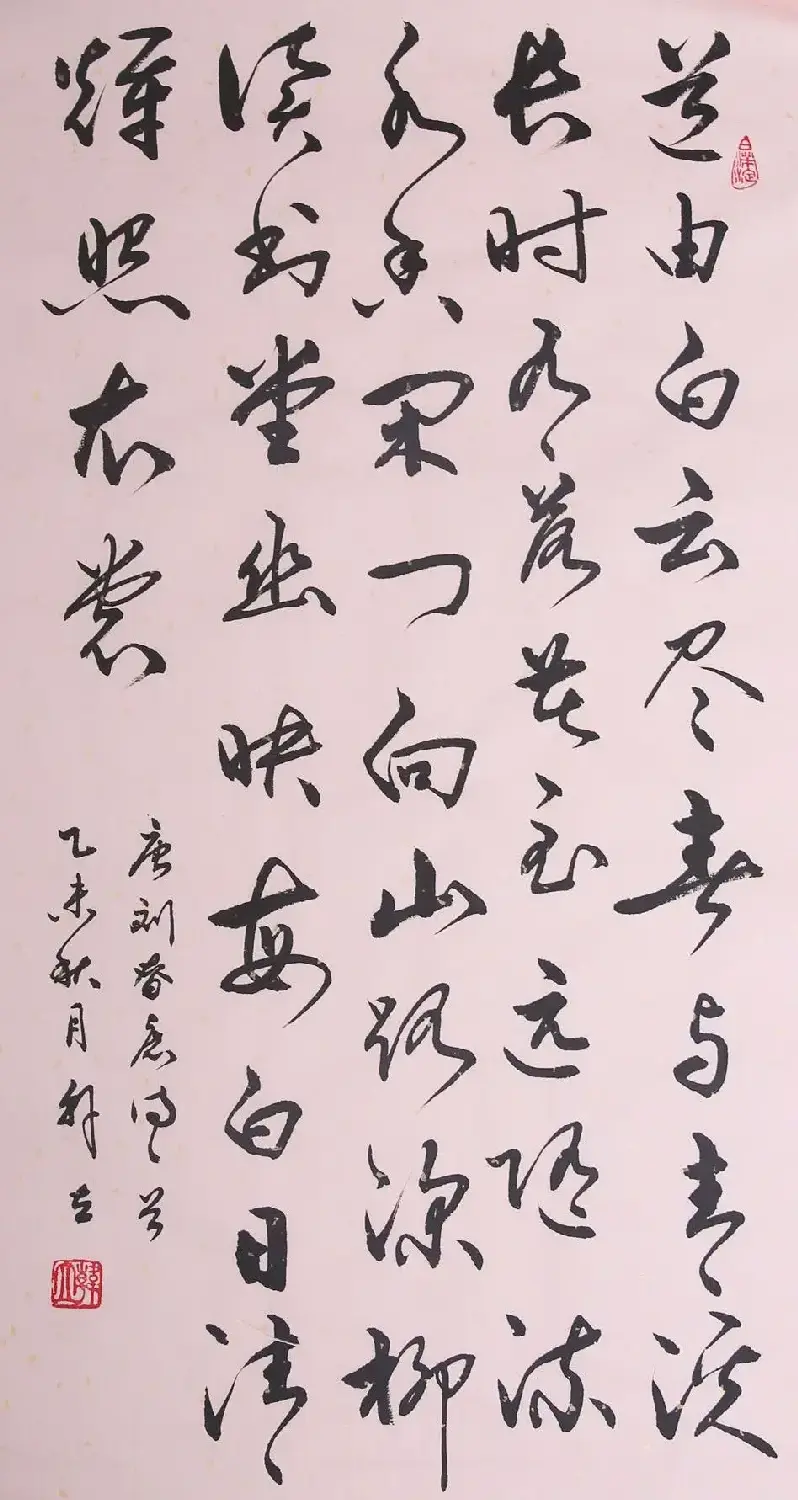 道由白云尽春与青溪
长时有落花至远随流
水香闲门向山路深柳
读书堂幽映每白日清
辉照衣裳
唐刘昚虚诗一首
乙未秋月韩立
韓立